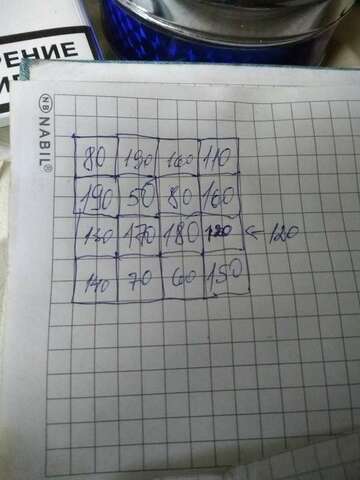 РЕНИЕ
NB NABIL®
80 190 160 110
190 50 80 160
130 170 180 120 ← 120
140 70 60 150